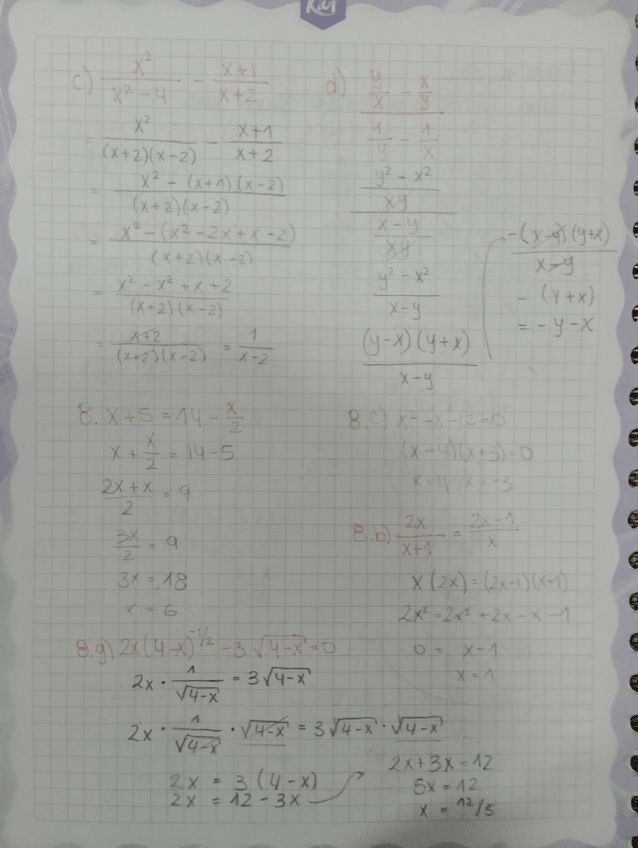 Kiut
c) x²/(x²-4) - (x+1)/(x+2)
x²/((x+2)(x-2)) - (x+1)/(x+2)
= (x² - (x+1)(x-2))/((x+2)(x-2))
= (x² - (x² - 2x + x - 2))/((x+2)(x-2))
= (x² - x² + x + 2)/((x+2)(x-2))
= (x+2)/((x+2)(x-2)) = 1/(x-2)
d) (y/x - x/y)/(1/y - 1/x)
((y² - x²)/(xy))/((x-y)/(xy))
(y² - x²)/(x-y)
((y-x)(y+x))/(x-y)
(-(x-y)(y+x))/(x-y)
- (y+x)
= -y-x
8. x+5 = 14 - x/2
x + x/2 = 14-5
(2x+x)/2 = 9
3x/2 = 9
3x = 18
x = 6
8.c) x²-x-12=0
(x-4)(x+3)=0
x=4, x=-3
8.b) 2x/(x+1) = (2x-1)/x
x(2x)=(2x-1)(x+1)
2x²=2x²+2x-x-1
0 = x-1
x=1
8.g) 2x(4-x)^-1/2 - 3√(4-x)=0
2x · 1/√(4-x) = 3√(4-x)
2x · 1/√(4-x) · √(4-x) = 3√(4-x) · √(4-x)
2x = 3(4-x)
2x = 12-3x
2x+3x=12
5x=12
x = 12/5